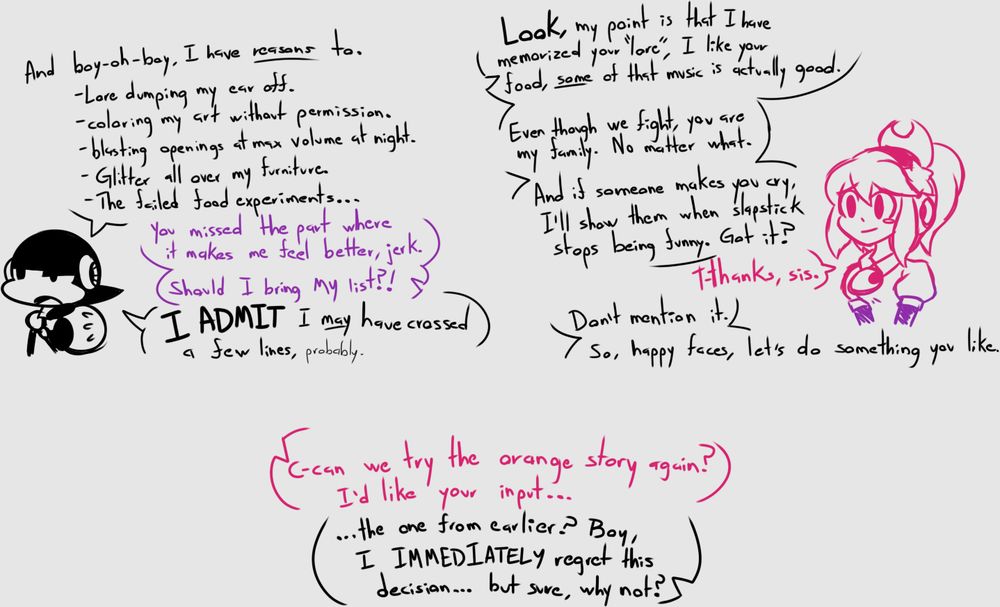 And boy-oh-boy, I have reasons to.
-Lore dumping my ear off.
-coloring my art without permission.
-blasting openings at max volume at night.
- Glitter all over my furniture.
- The failed food experiments...
You missed the part where
it makes me feel better, jerk.
Should I bring My list?!
I ADMIT I may have crossed
a few lines, probably.
Look, my point is that I have
memorized your "lore", I like your
food, some of that music is actually good.
Even though we fight, you are
my family. No matter what.
And if someone makes you cry,
I'll show them when slapstick
stops being funny. Got it?
T-thanks, sis.
Don't mention it.
So, happy faces, let's do something you like.
C-can we try the orange story again?
I'd like your input...
...the one from earlier? Boy,
I IMMEDIATELY regret this
decision... but sure, why not?